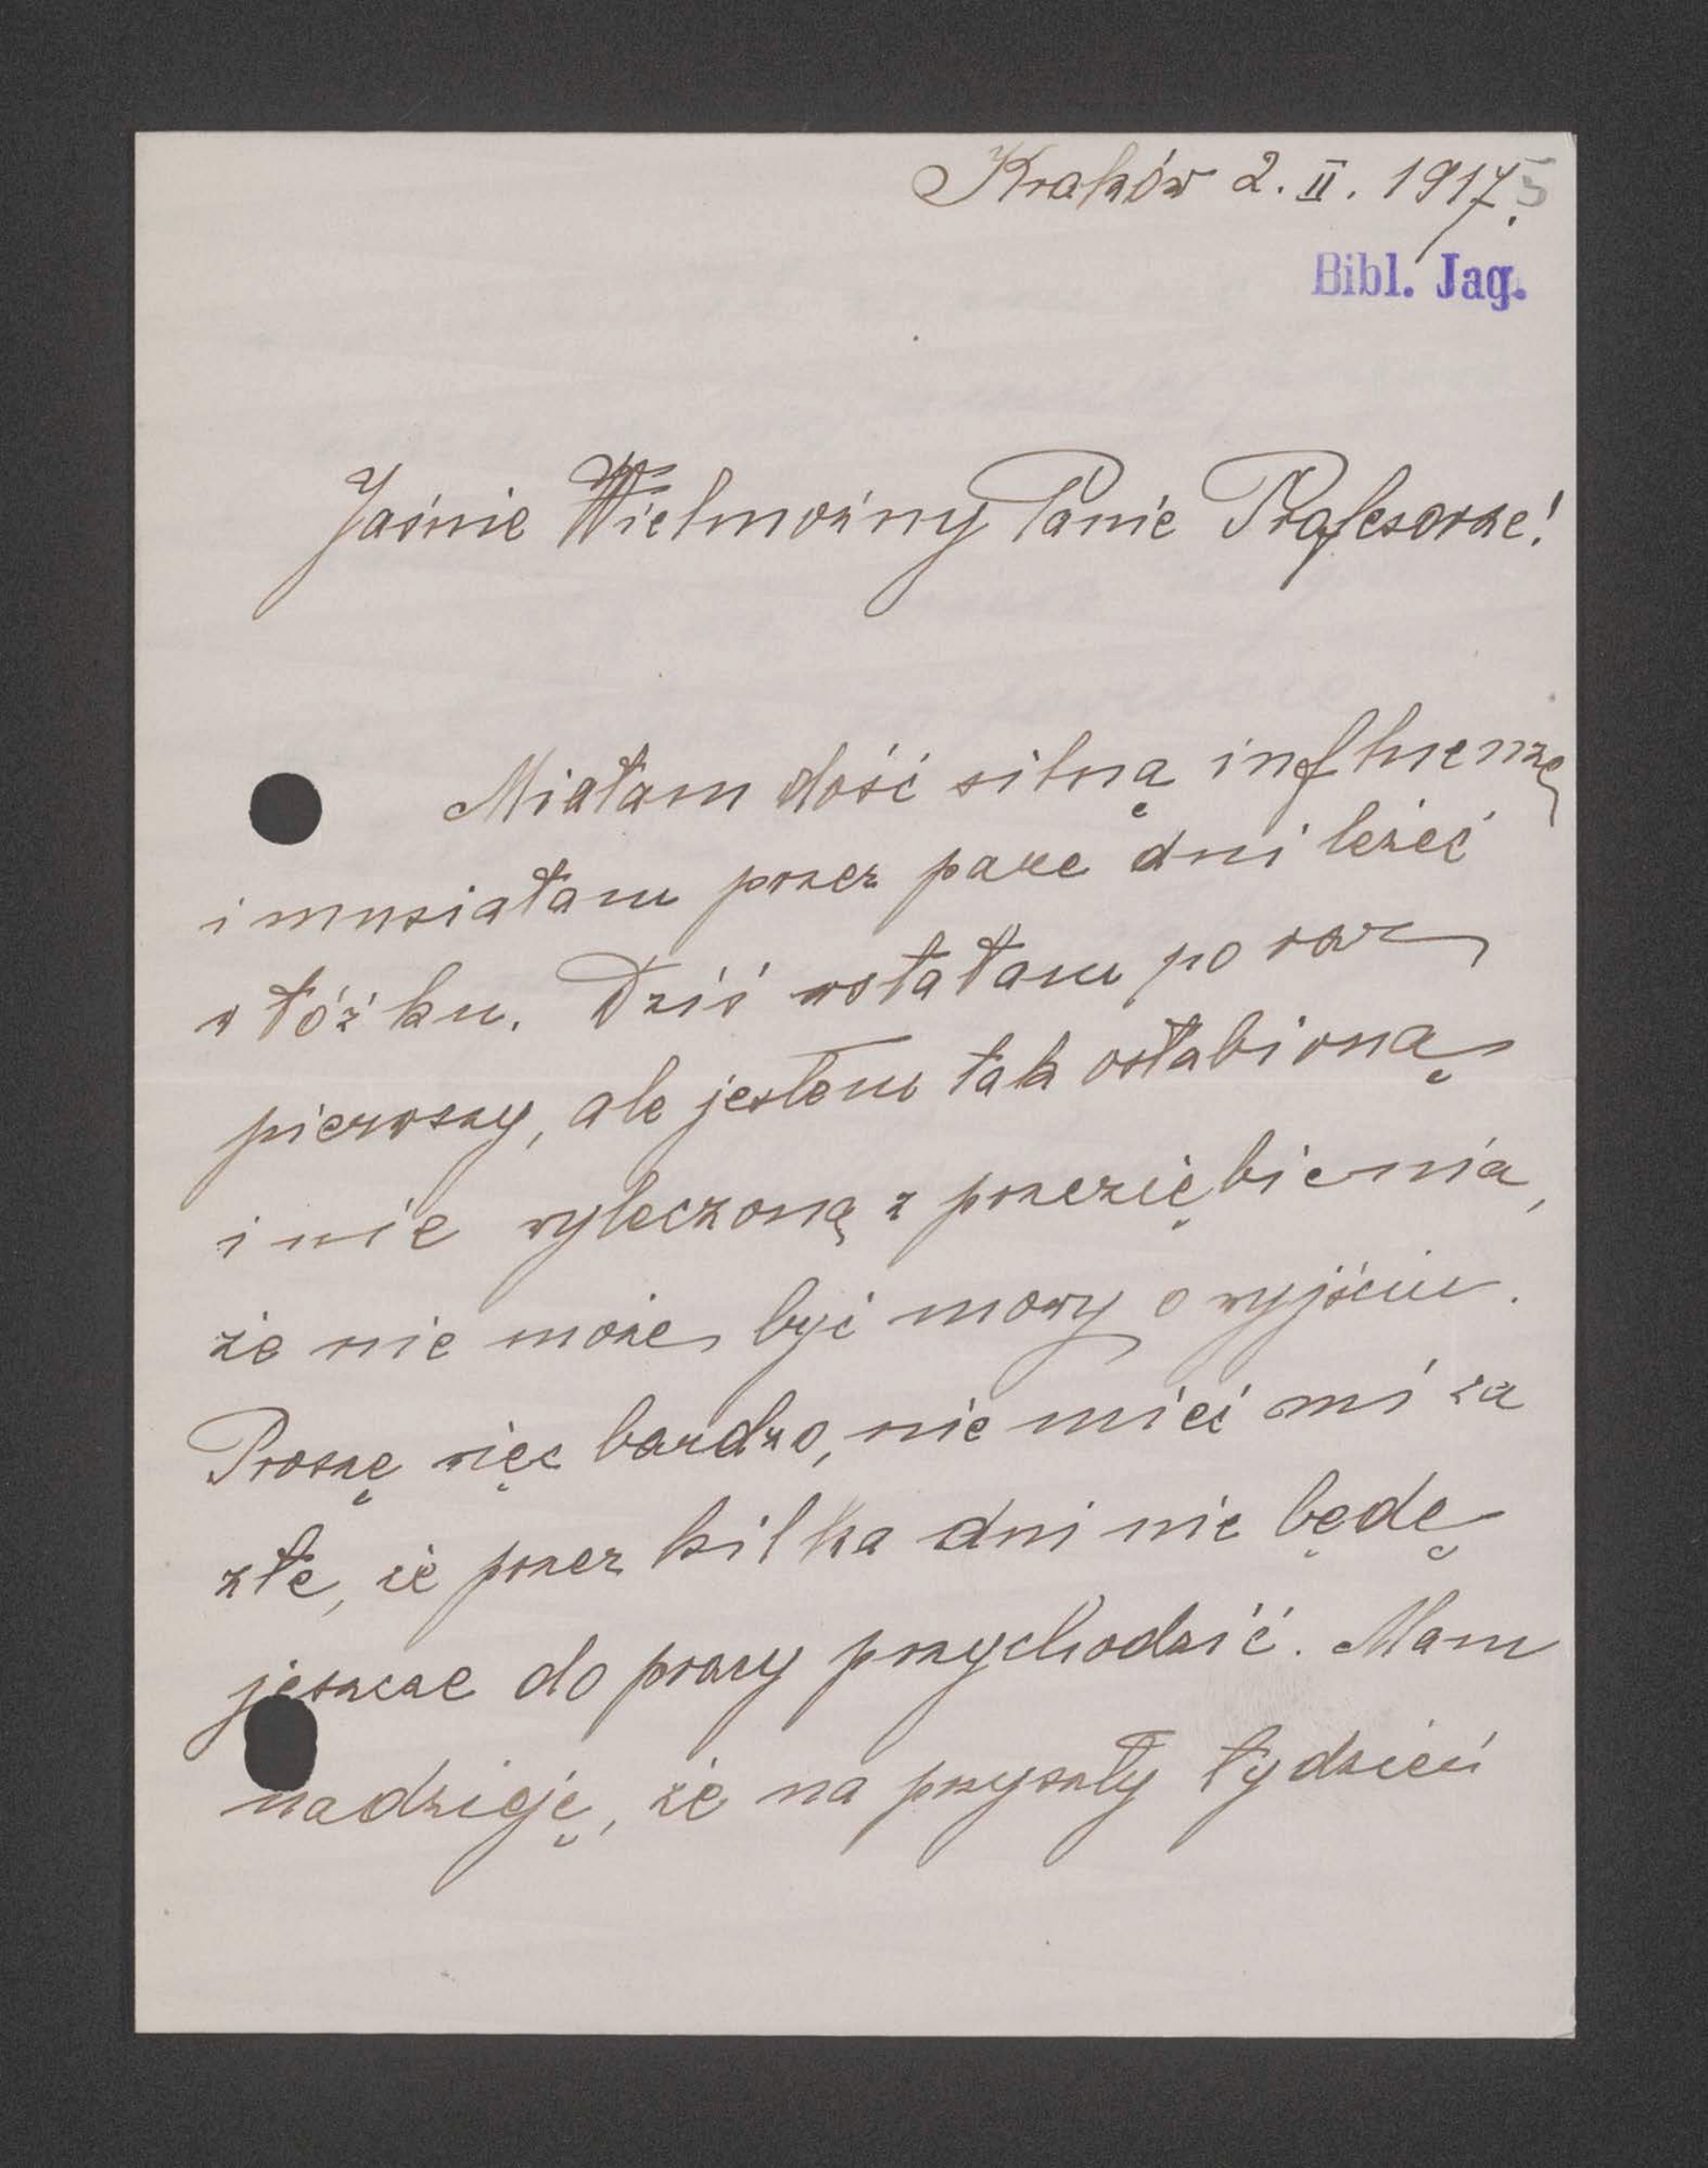 Kraków 2. II. 1917. 5
Bibl. Jag.
Jaśnie Wielmożny Panie Profesorze!
Miałam dość silną influenzę
i musiałam przez parę dni leżeć
w łóżku. Dziś wstałam po raz
pierwszy, ale jestem tak osłabioną
i nie wyleczoną z przeziębienia,
że nie może być mowy o wyjściu.
Proszę więc bardzo, nie mieć mi za
złe, że przez kilka dni nie będę
jeszcze do pracy przychodzić. Mam
nadzieję, że na przyszły tydzień